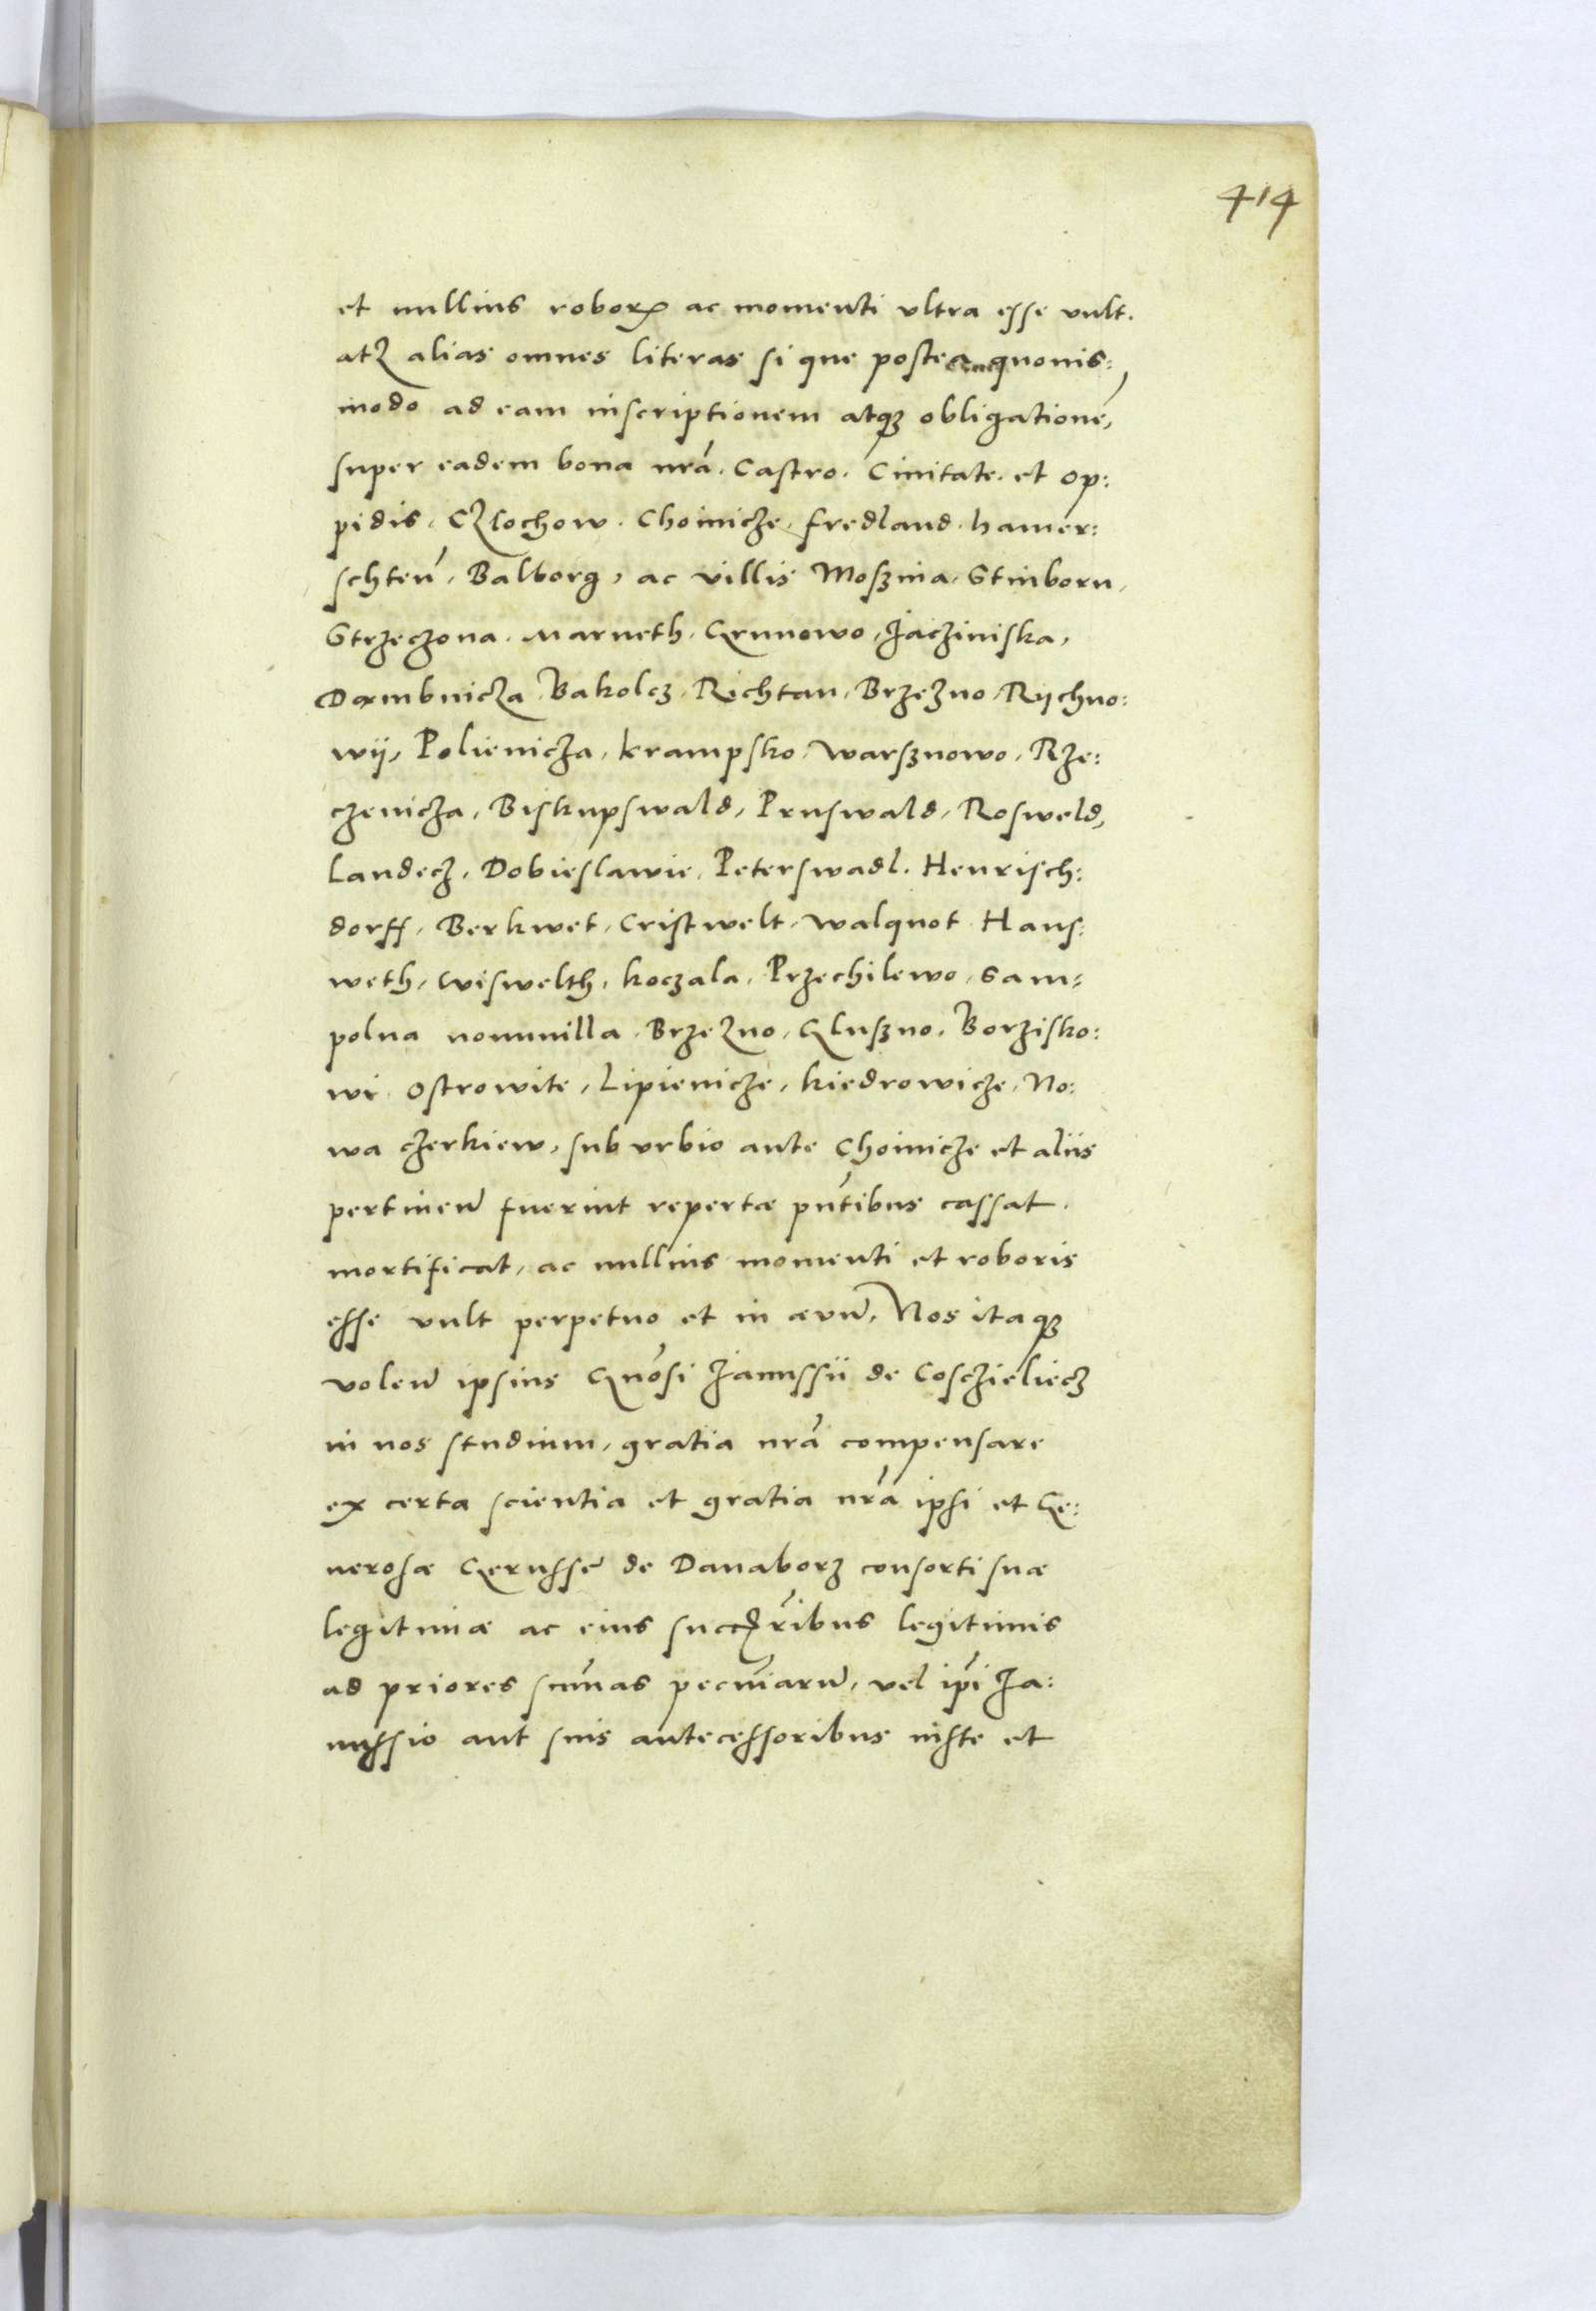 414
et nullius roboris ac momenti vltra esse vult.
atq alias omnes literas si que postea quouis:
modo ad eam inscriptionem atque obligationē,
super eadem bona nrā. Castro. Ciuitate. et op:
pidis. Czlochow. Choinicze. fredland. hamer:
schten̄. Balborg, ac villis Moszina. Stinborn.
Strzeczona. Marneth. Grunowo. Jacziniska,
Dambnicza. Bakolcz. Richtan. Brzezno. Rychno:
wij, Polienicza. krampsko. warsznowo. Rze:
czenicza, Biskupswald, Pruswald, Rosweld,
Landecz. Dobieslawie. Peterswadl. Henrisch:
dorff. Berkwet. Cristwelt. walquot Hans:
weth. wiswelth. koczala. Przechilewo. Sam:
polna nonnulla. Brzezno. Gluszno. Borzisko:
wi. Ostrowite. Lipienicze. kiedrowicze. No:
wa czerkiew, sub vrbio ante Choinicze et aliis
pertinen̄ fuerint repertæ pn̄tibus cassat.
mortificat, ac nullius momenti et roboris
esse vult perpetuo et in æuū. Nos itaque
volen̄ ipsius Gnōsi Janussii de Cosczieliecz
in nos studium, gratia nrā compensare
ex certa scientia et gratia nrā ipsi et Ge:
nerosæ Gerussē de Danaborz consorti suæ
legitimæ ac eius succribus legitimis
ad priores sum̄as pecuniarū. vel ip̄i Ja:
nussio aut suis antecessoribus iuste et